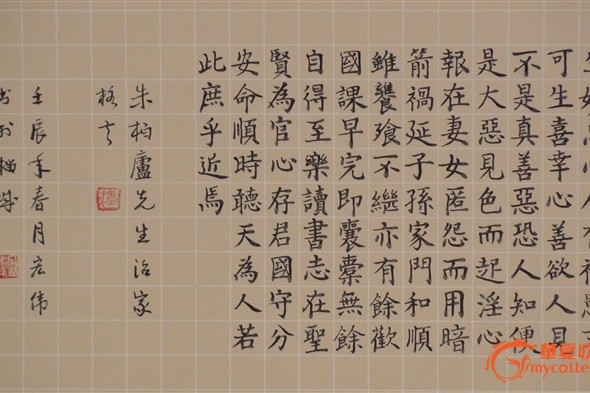 可生喜幸心善欲人見
不是真善惡恐人知便
是大惡見色而起淫心
報在妻女匿怨而用暗
箭禍延子孫家門和順
雖饔飧不繼亦有餘歡
國課早完即囊橐無餘
自得至樂讀書志在聖
賢為官心存君國守分
安命順時聽天為人若
此庶乎近焉
朱柏廬先生治家
格言
壬辰年春月宏伟
華夏收
mycolle